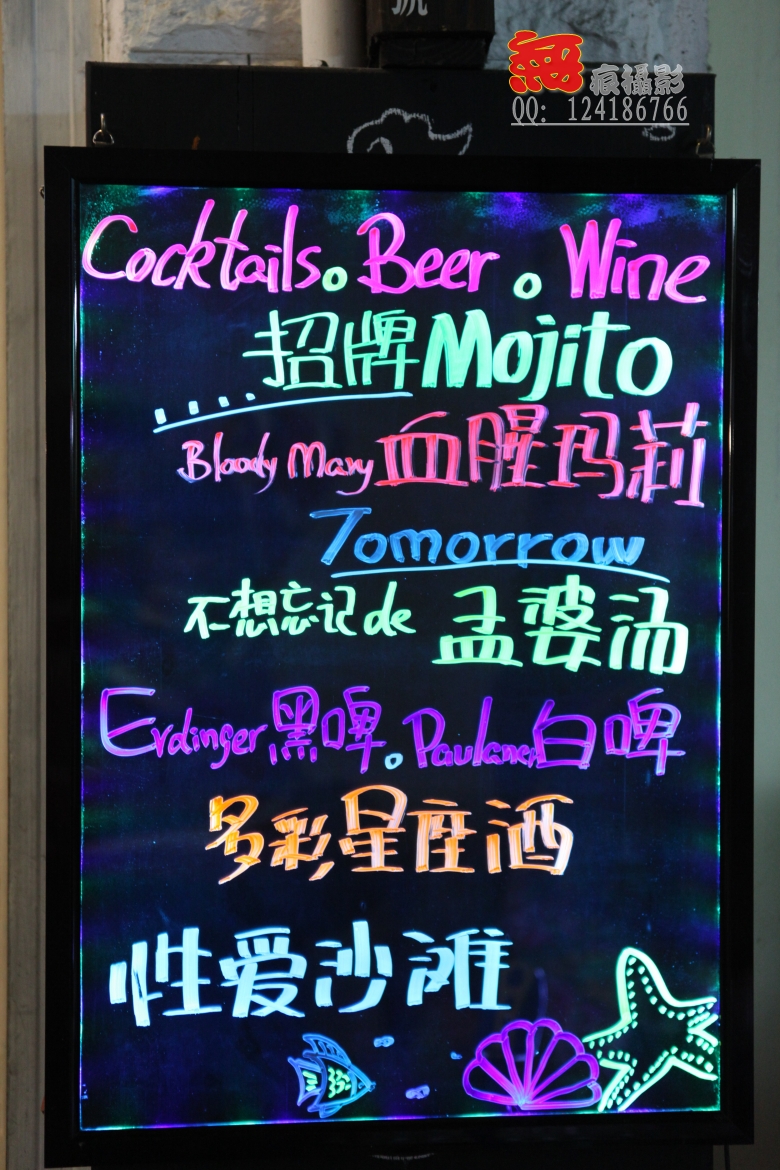 無痕攝影
QQ: 124186766
Cocktails。Beer。Wine
招牌Mojito
Bloody Mary 血腥玛莉
Tomorrow
不想忘记de 孟婆汤
Erdinger黑啤。Paulaner白啤
多彩星座酒
性爱沙滩